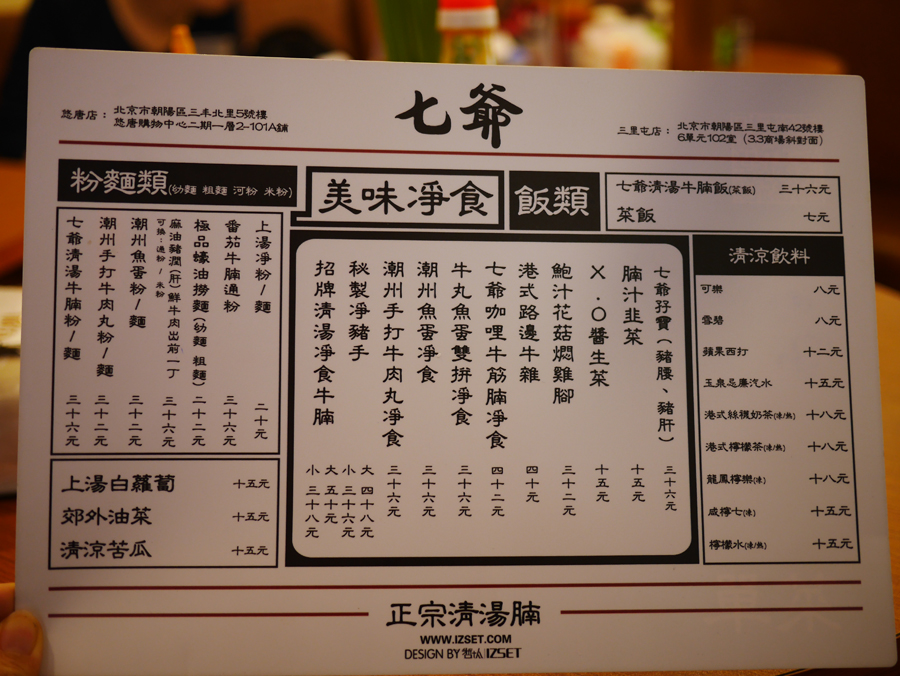 七爺
悠唐店：北京市朝陽區三丰北里5號樓
悠唐購物中心二期一層2-101A鋪
三里屯店：北京市朝陽區三里屯南42號樓
6單元102室（3.3商場斜對面）
粉麵類(幼麵 粗麵 河粉 米粉)
上湯凈粉/麵 二十元
番茄牛腩通粉 三十六元
極品蠔油撈麵(幼麵 粗麵) 二十二元
麻油豬潤(肝)鮮牛肉出前一丁 三十六元
可換:通粉/米粉
潮州魚蛋粉/麵 三十二元
潮州手打牛肉丸粉/麵 三十二元
七爺清湯牛腩粉/麵 三十六元
上湯白蘿蔔 十五元
郊外油菜 十五元
清涼苦瓜 十五元
美味凈食
七爺孖寶(豬腰、豬肝) 三十六元
腩汁韭菜 十五元
X.O醬生菜 十五元
鮑汁花菇燜雞腳 三十二元
港式路邊牛雜 四十元
七爺咖哩牛筋腩凈食 四十二元
牛丸魚蛋雙拼凈食 三十六元
潮州魚蛋凈食 三十六元
潮州手打牛肉丸凈食 三十六元
秘製凈豬手 大 四十八元 小 三十六元
招牌清湯凈食牛腩 大 五十元 小 三十八元
飯類
七爺清湯牛腩飯(菜飯) 三十六元
菜飯 七元
清涼飲料
可樂 八元
雪碧 八元
蘋果西打 十二元
玉泉忌廉汽水 十五元
港式絲襪奶茶(凍/熱) 十八元
港式檸檬茶(凍/熱) 十八元
龍鳳檸樂(凍) 十八元
咸檸七(凍) 十五元
檸檬水(凍/熱) 十五元
正宗清湯腩
WWW.IZSET.COM
DESIGN BY IZSET